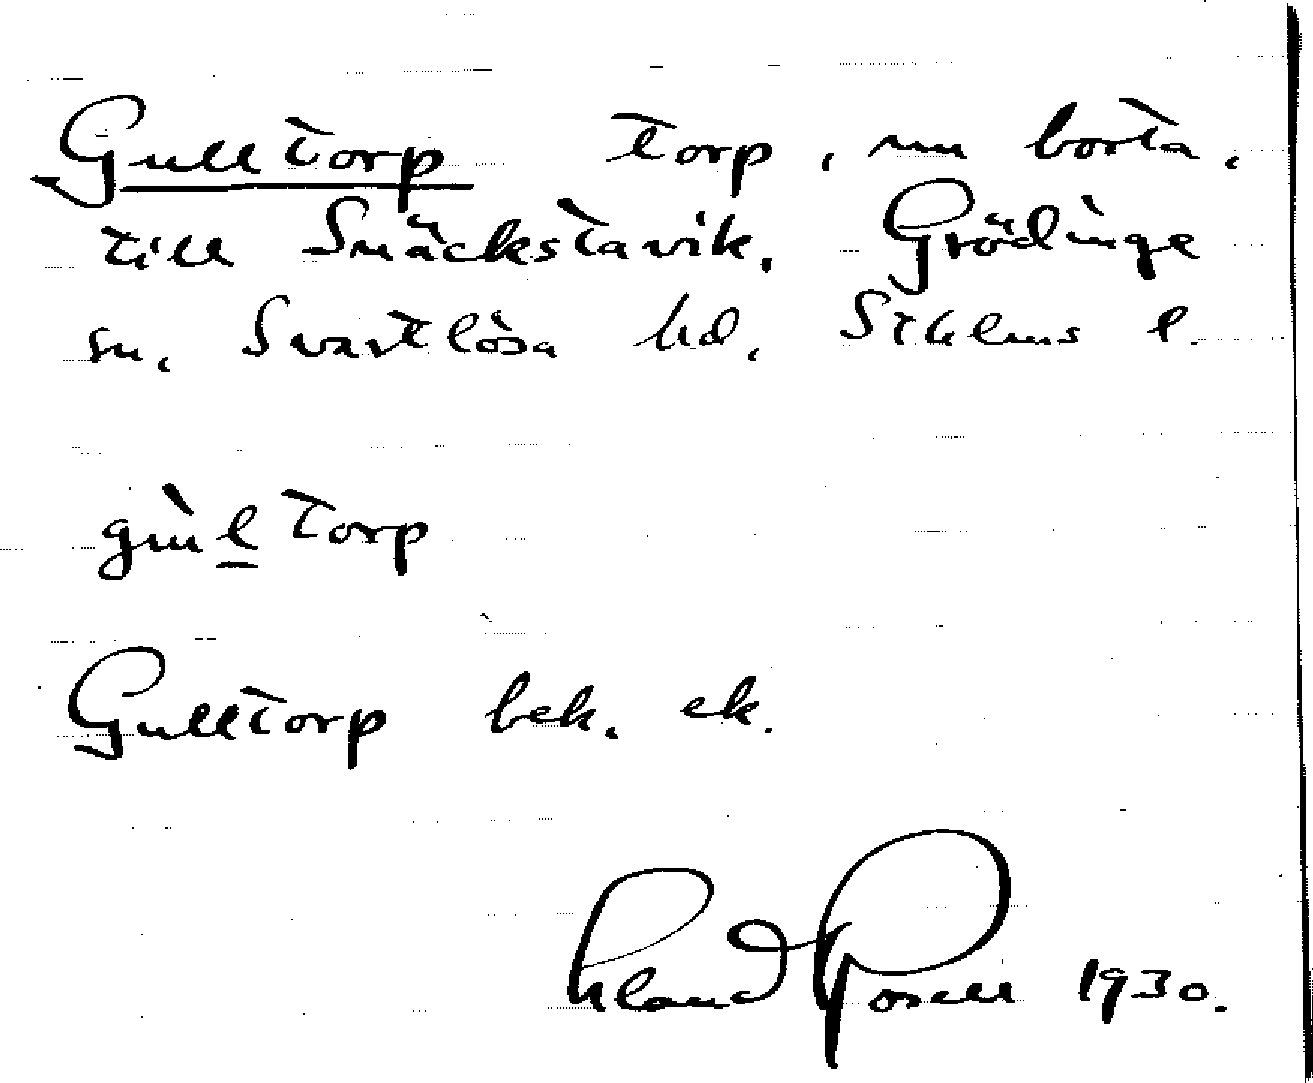 Gulltorp torp, nu borta,
till Snäckstavik, Grödinge
sn, Svartlösa hd, Sthlms l.
gùltorp
Gulltorp bek. ek.
Erland Rosell 1930.